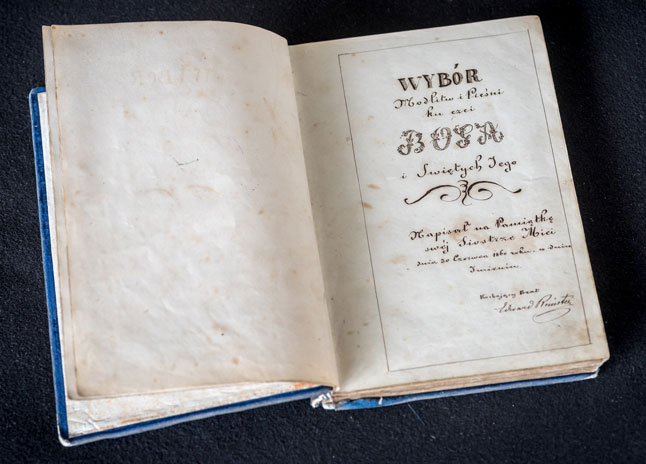 WYBÓR
Modlitw i Pieśni
ku czci
BOGA
i Świętych Jego
Napisał na Pamiątkę
swój Siostrze Mici
dnia 20 Czerwca 1860 roku w dniu
Imienin.
Kochający Brat
Edward